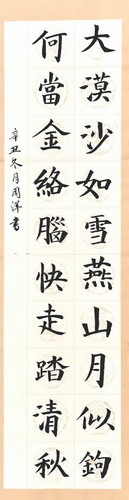 大漠沙如雪燕山月似鉤
何當金絡腦快走踏清秋
辛丑冬月周洋書